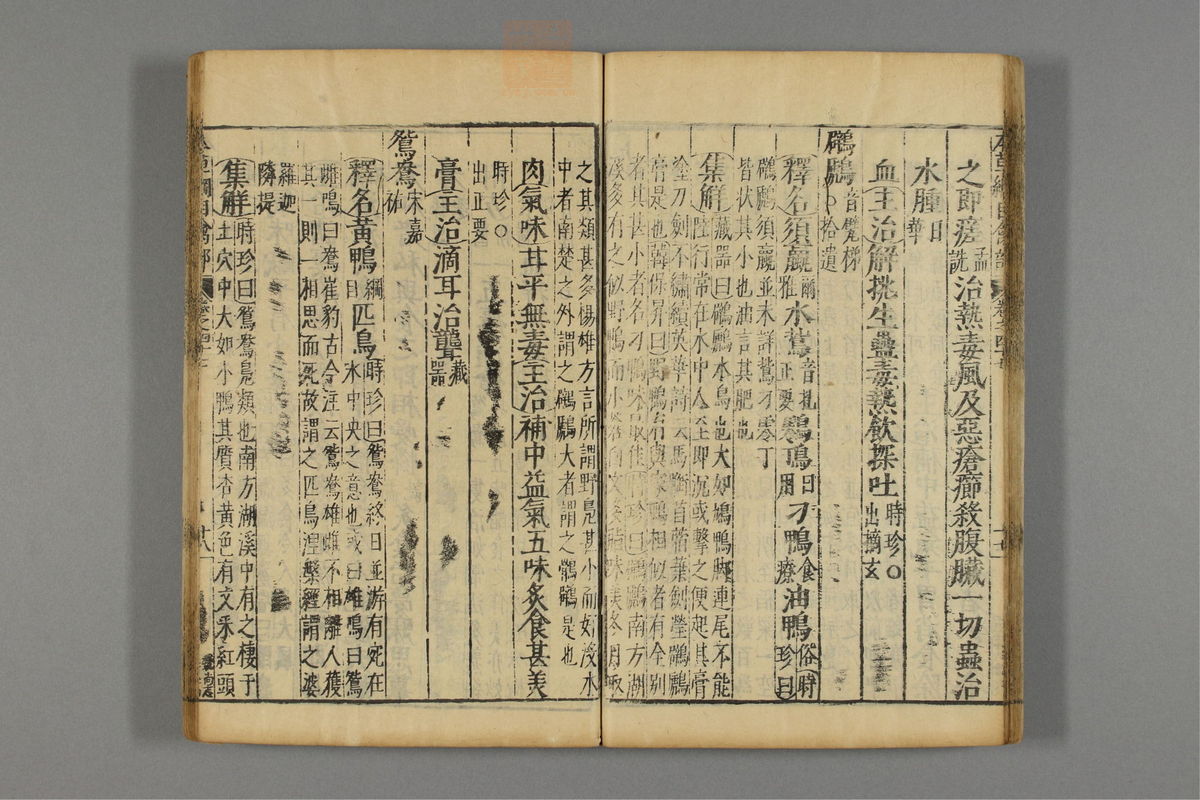 之即瘥孟詵治熱毒風及惡瘡癤殺腹臟一切蟲治
水腫日華
血主治解挑生蠱毒熱飲探吐時珍○出摘玄
鸊鷉音甓梯○拾遺
釋名須蠃爾雅水𪆂音札正要鷉鴠日用刁鴨食療油鴨俗時珍曰
鸊鷉須蠃並未詳鷔刁零丁
皆狀其小也油言其肥也
集解藏器曰鸊鷉水鳥也大如鳩鴨脚連尾不能
陸行常在水中人至即沉或擊之便起其膏
塗刀劍不繡續英華詩云馬銜苜蓿葉劍瑩鸊鷉
膏是也韓保昇曰野鴨有與家鴨相似者有全別
者其甚小者名刁鴨味最佳時珍曰鸊鷉南方湖
溪多有之似野鴨而小
之其類甚多楊雄方言所謂野鳧甚小而好沒水
中者南楚之外謂之鸊鷉大者謂之鶻鷉是也
肉氣味甘平無毒主治補中益氣五味炙食甚美
時珍○
出正要
膏主治滴耳治聾藏器
鴛鴦宋嘉祐
釋名黃鴨綱目匹鳥時珍曰鴛鴦終日並游有宛在
水中央之意也或曰雄鳴曰鴛
雌鳴曰鴦崔豹古今注云鴛鴦雄雌不相離人獲
其一則一相思而死故謂之匹鳥涅槃經謂之婆
羅迦
隣提
集解時珍曰鴛鴦鳧類也南方湖溪中有之棲于
土穴中大如小鴨其質杏黃色有文采紅頭